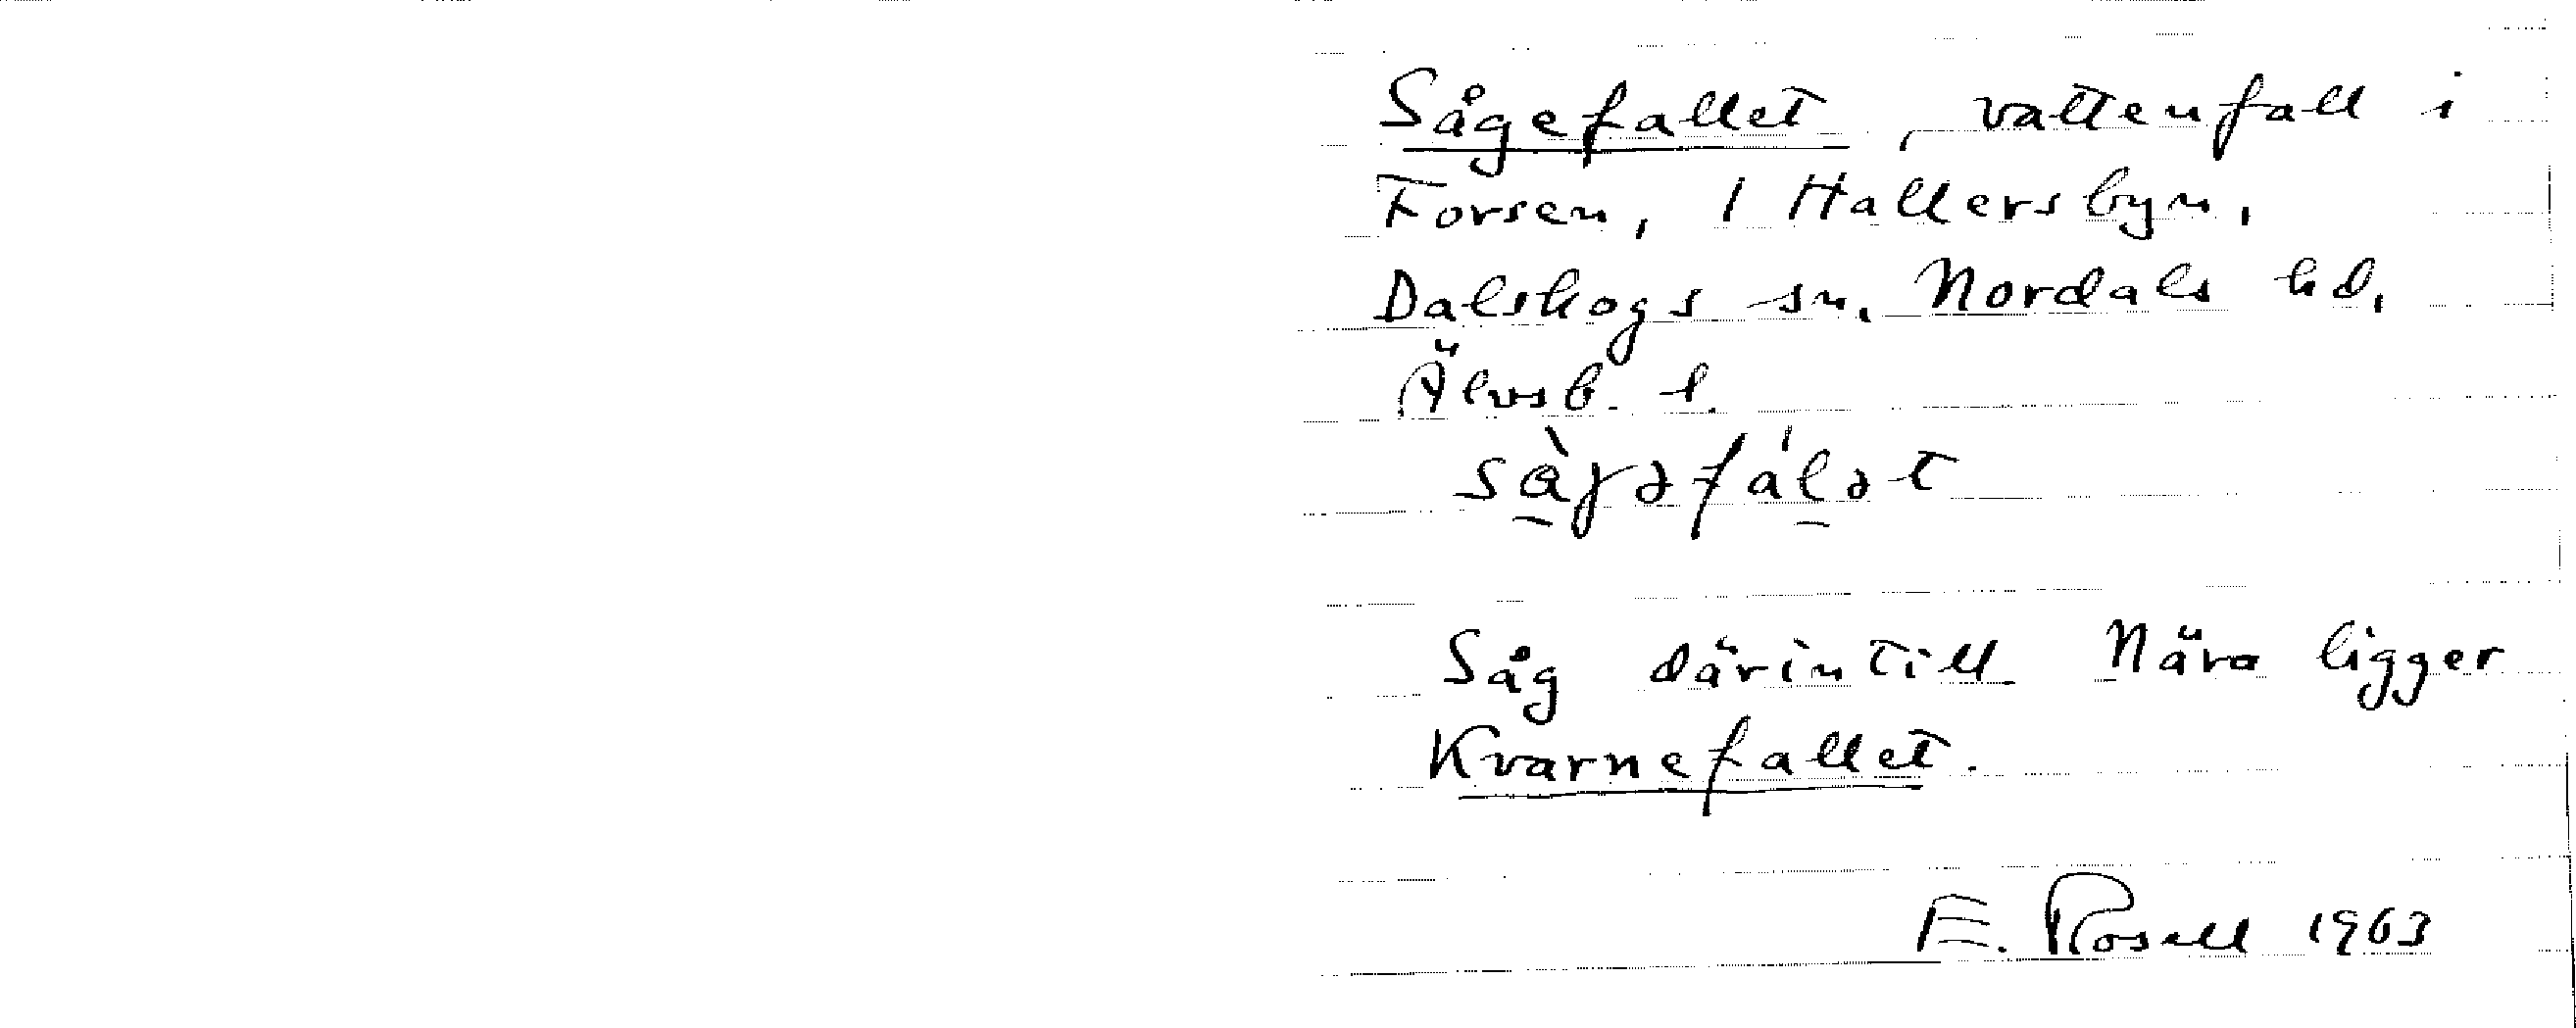 Sågefallet, vattenfall i
Forsen, 1 Hallersbyn,
Dalskogs sn. Nordals hd,
Älvsb. l.
sàɣəfálət
Såg därintill Nära ligger
Kvarnefallet.
E. Rosell 1963